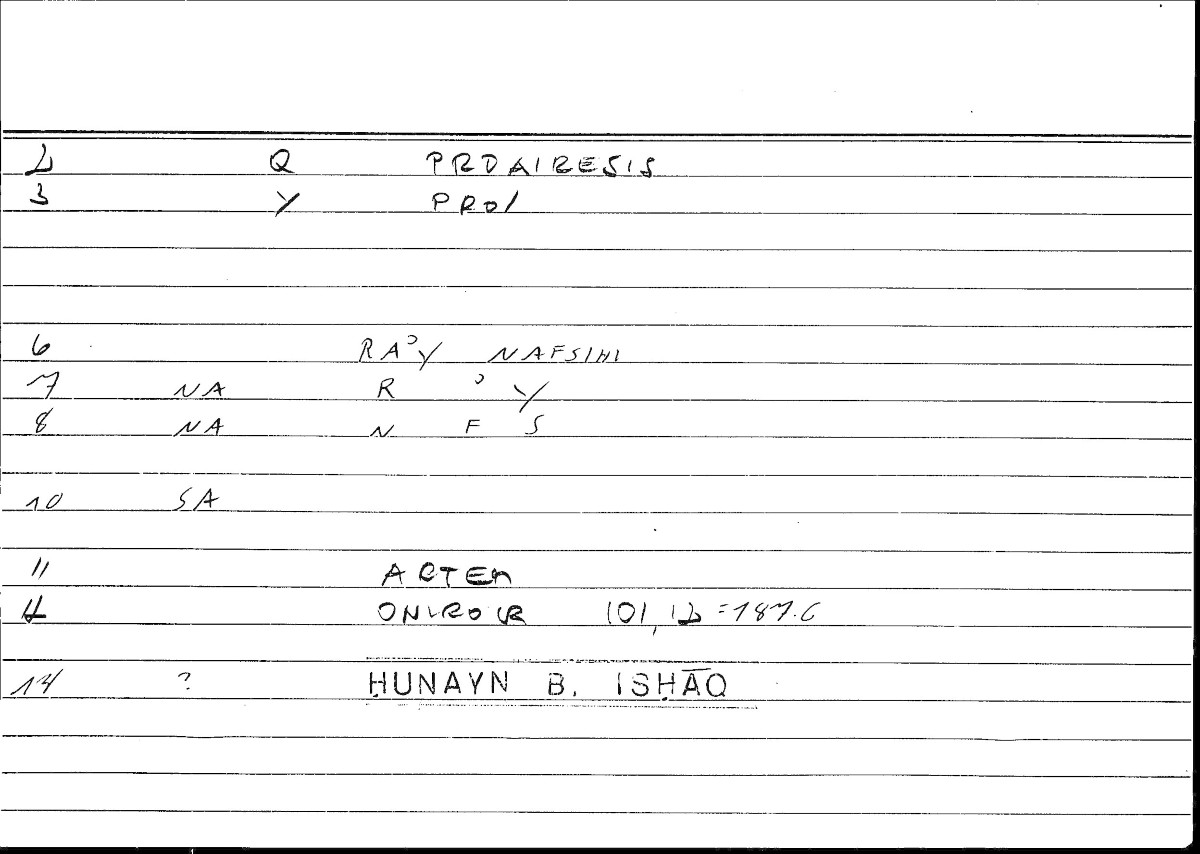 2 Q PROAIRESIS
3 Y PRO/
6 RAʾY NAFSIHI
7 NA R ʾ Y
8 NA N F S
10 SA
11 ARTEM
12 ONIROCR 101,12=187.6
14 ? ḤUNAYN B. ISḤĀQ